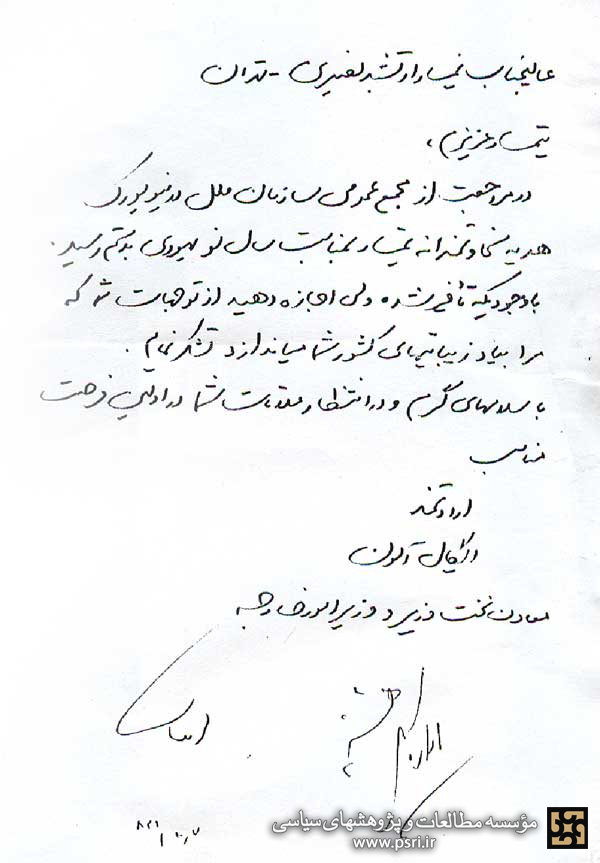 عالیجناب تیمسار ارتشبد نصیری - تهران
تیمسار عزیزم،
در مراجعت از مجمع عمومی سازمان ملل در نیویورک
هدیه سخاوتمندانه تیمسار بمناسبت سال نو یهودی بدستم رسید.
با وجودیکه تأخیر شده ولی اجازه دهید از توجهات شما که
مرا بیاد زیبائیهای کشور شما میاندازد تشکر نمایم.
با سلامهای گرم و در انتظار ملاقات شما در اولین فرصت
مناسب
ارادتمند
ایگال آلون
معاون نخست وزیر و وزیر امور خارجه
مؤسسه مطالعات و پژوهشهای سیاسی
www.psri.ir